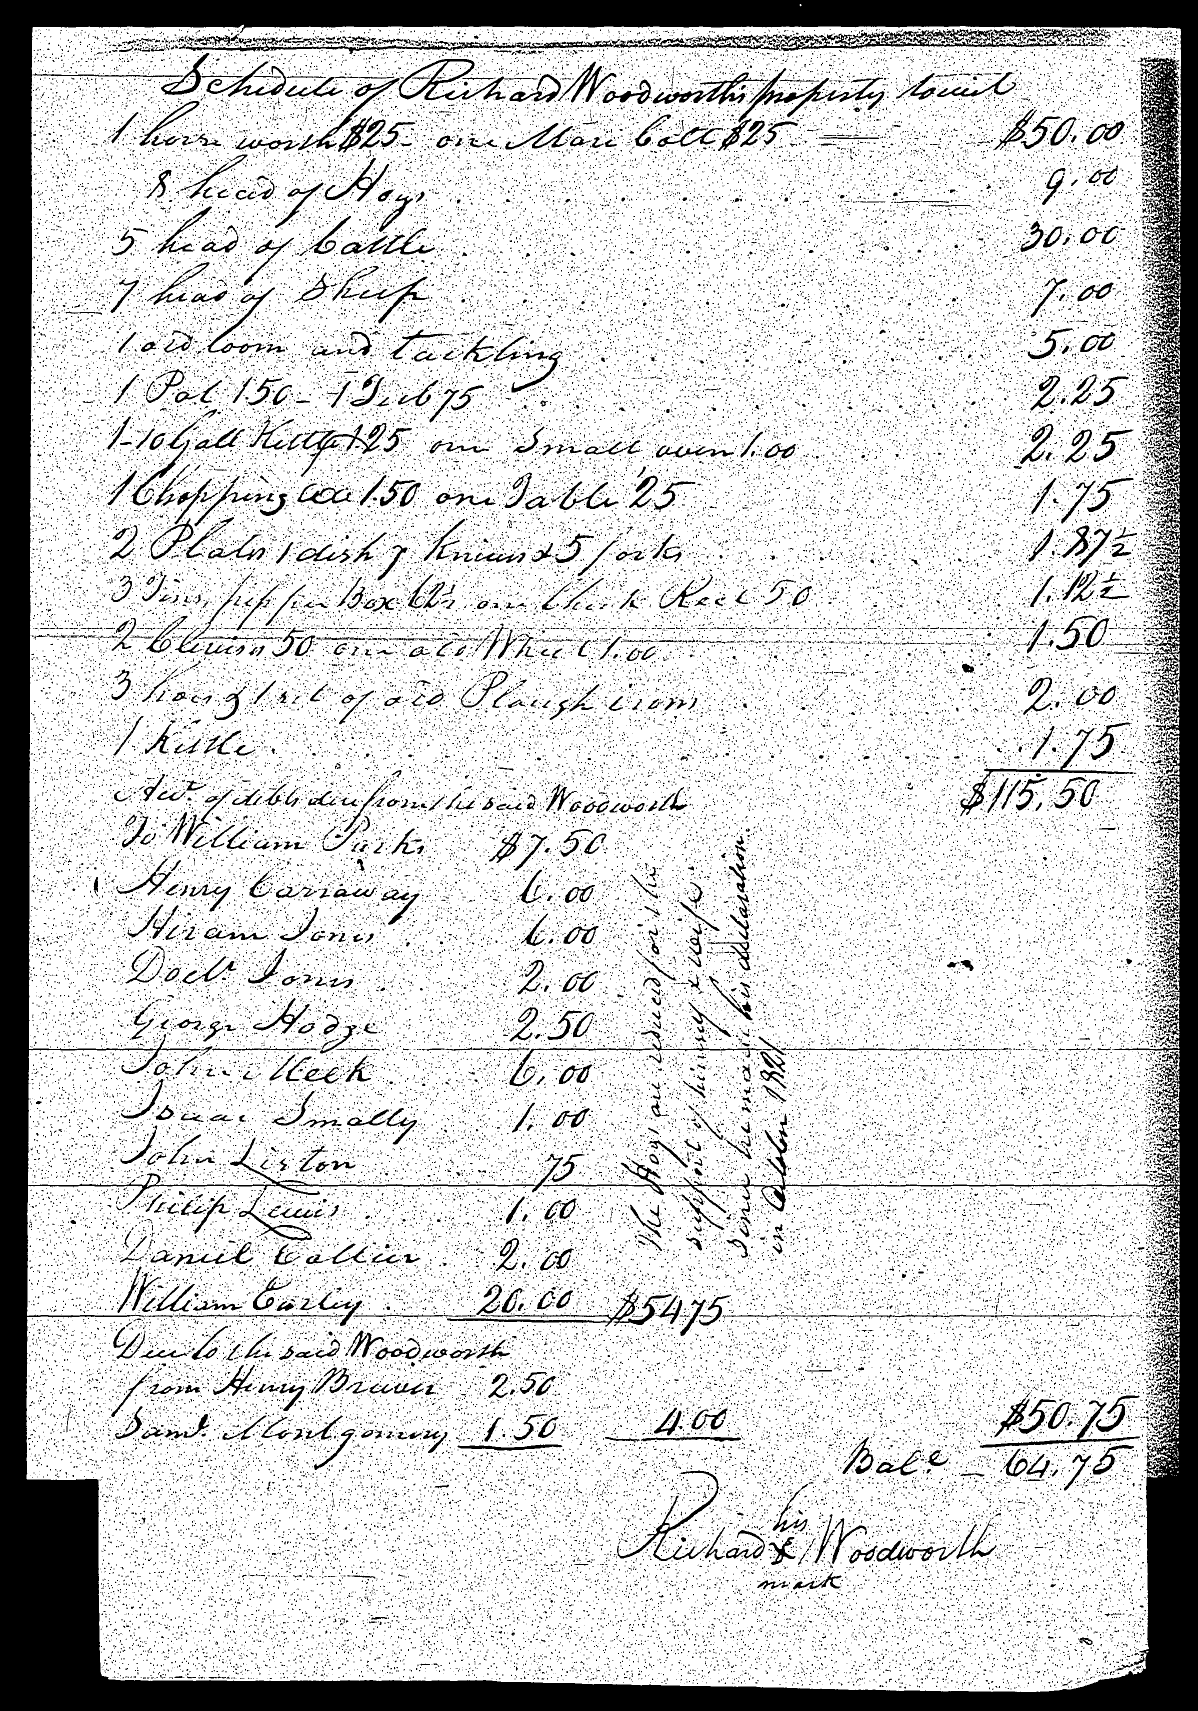 Schedule of Richard Woodworth's property towit
1 horse worth $25 - one Mare Colt $25 $50.00
8 head of Hogs 9.00
5 head of Cattle 30.00
7 head of Sheep 7.00
1 old loom and tackling 5.00
1 Pot 150 - 1 Tub 75 2.25
1-10 Gall Kettle 125 one Small oven 1.00 2.25
1 Chopping axe 1.50 one Table 25 1.75
2 Plates 1 dish 7 Knives & 5 forks 1.87 1/2
3 Tins, pepper Box 62 1/2 one Check Reel 50 1.12 1/2
2 Clevises 50 one old Wheel 1.00 1.50
3 hoes & 1 set of old Plough irons 2.00
1 Kettle 1.75
$115.50
Act. of debts due from the said Woodworth
To William Parks $7.50
Henry Carraway 6.00
Hiram Jones 6.00
Doctr Jones 2.00
George Hodge 2.50
John Meek 6.00
Isaac Smally 1.00
John Liston 75
Philip Lewis 1.00
Daniel Collier 2.00
William Earley 20.00 $54.75
The Hogs are reduced for the
support of himself & wife
since he made his declaration
in October 1821
Due to the said Woodworth
from Henry Brewer 2.50
Saml. Montgomery 1.50 4.00 $50.75
Bale. 64.75
his
Richard X Woodworth
mark